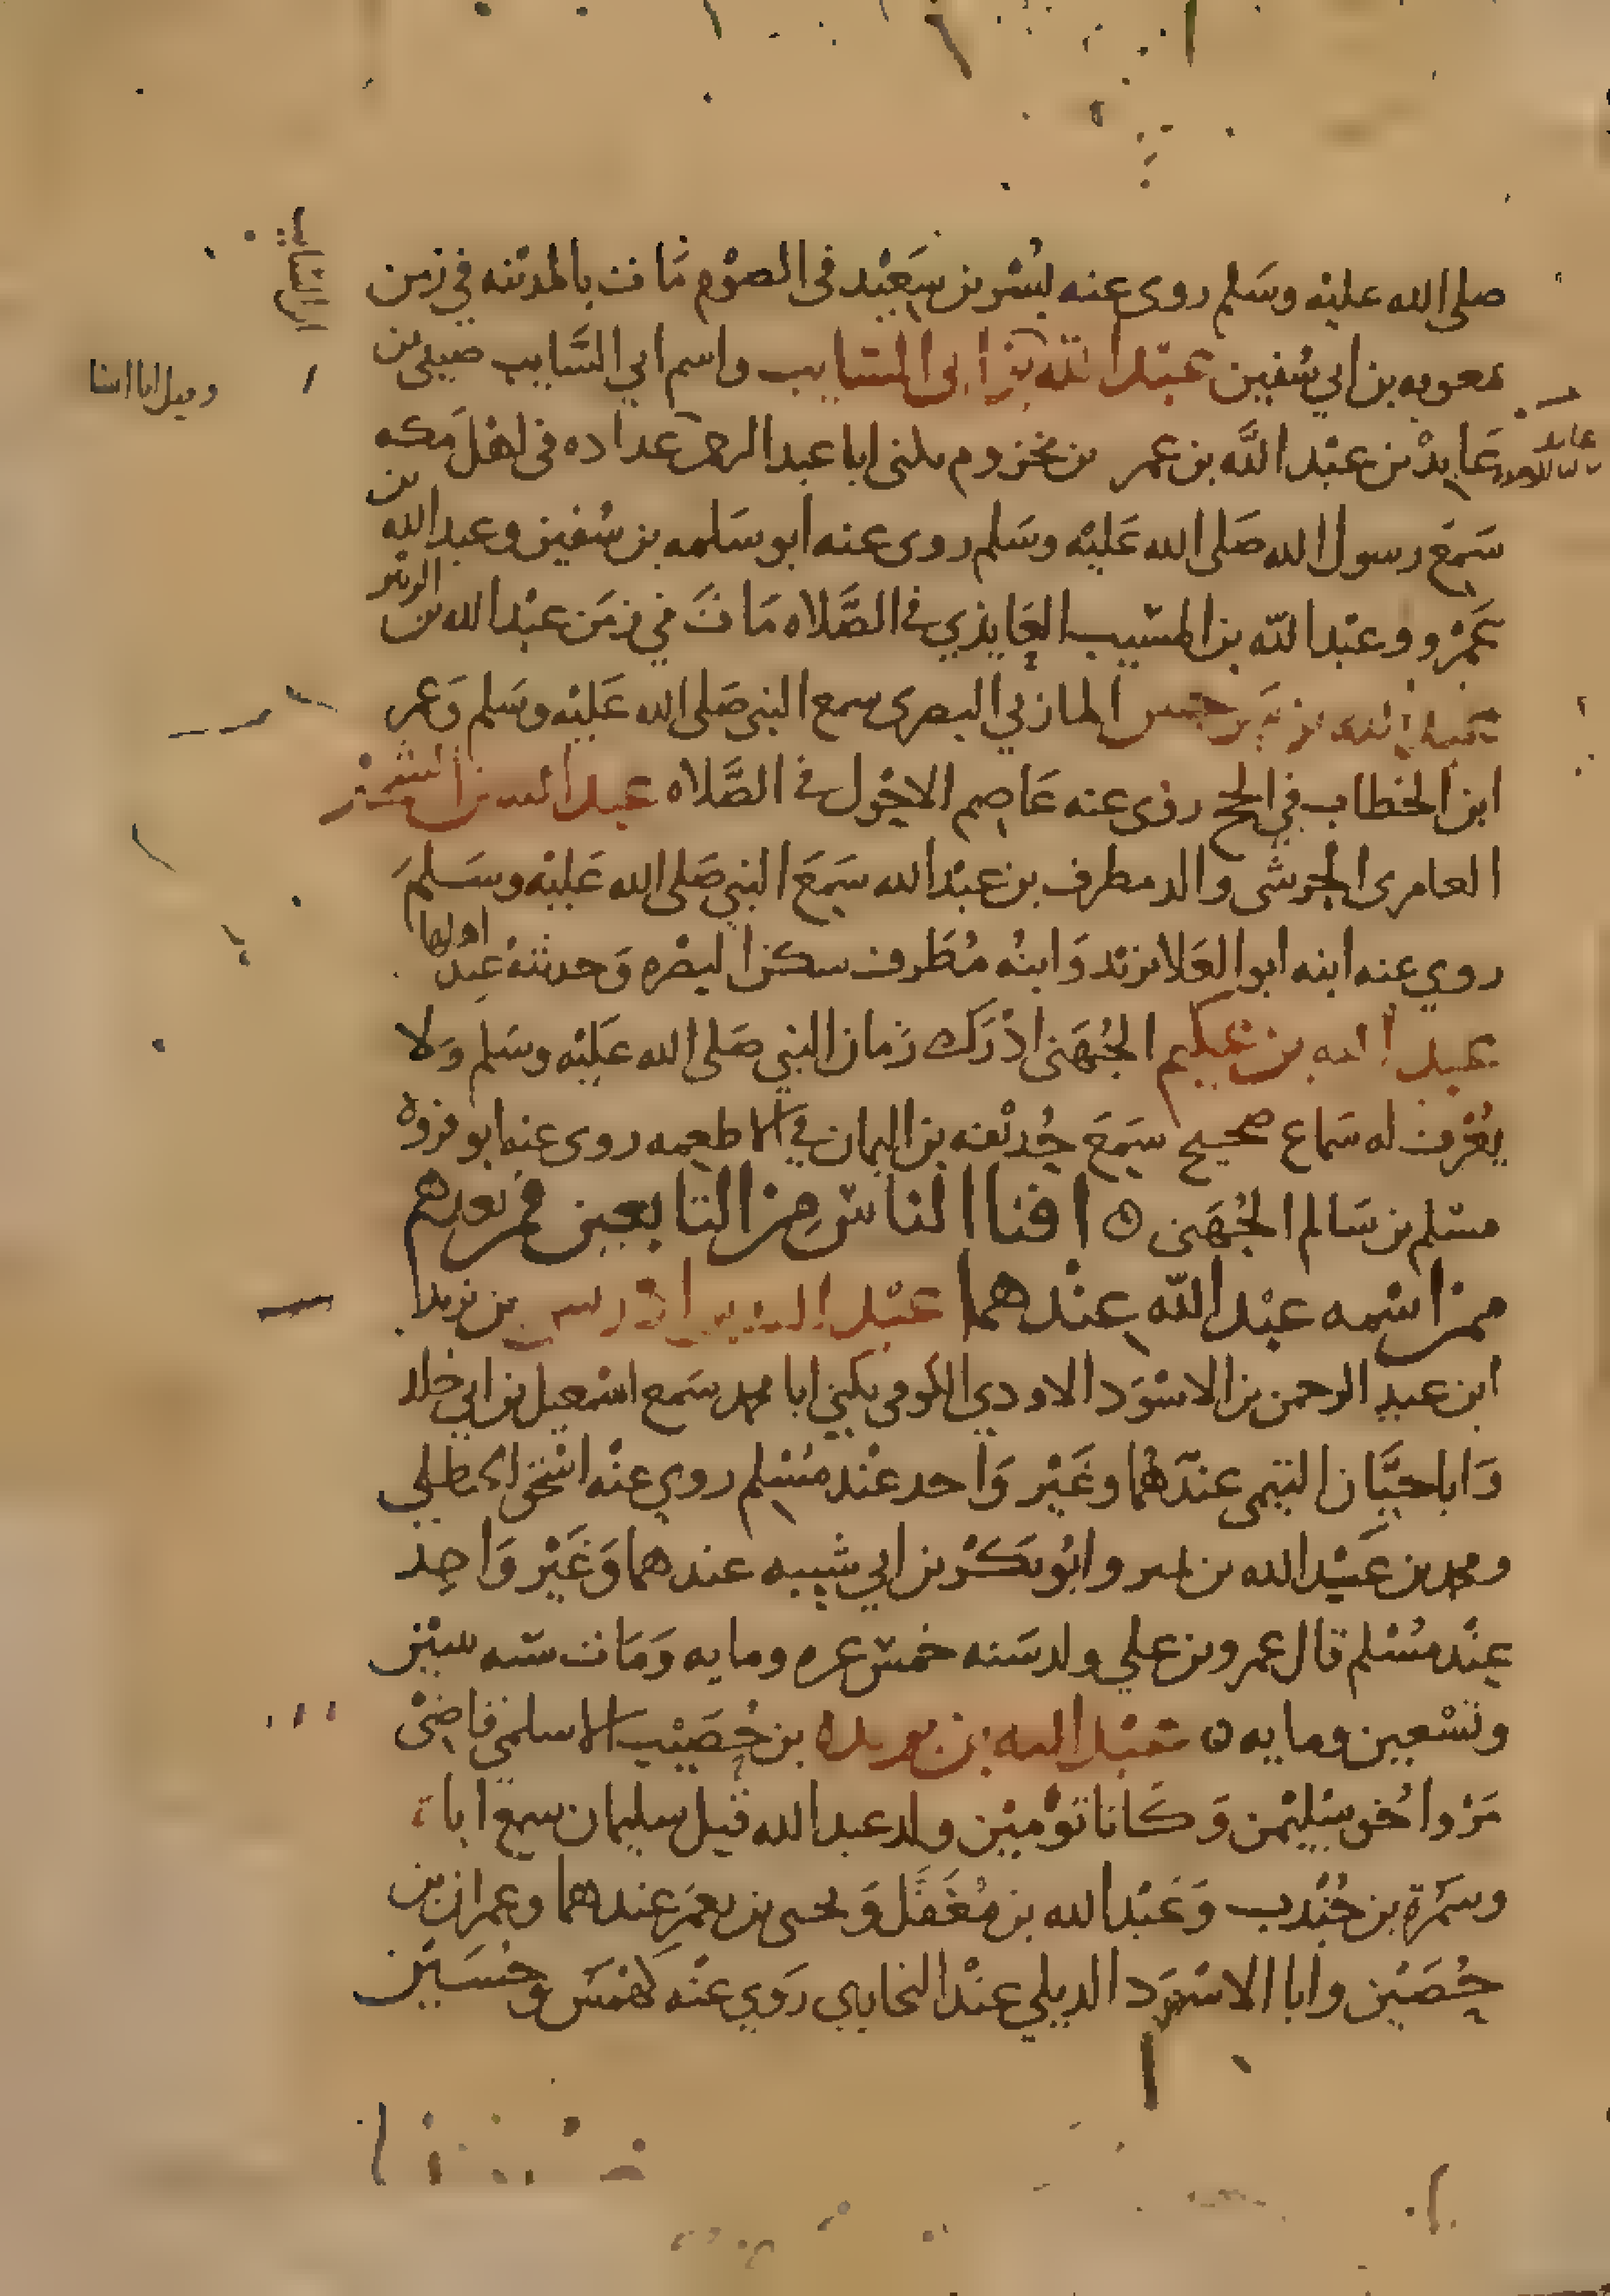 صلى الله عليه وسلم روى عنه بسر بن سعيد في الصوم مات بالمدينه في زمن
معويه بن ابي سفين عبد الله بن ابي السايب واسم ابي السايب صيفي بن
عايذ بن عبد الله بن عمر بن مخزوم يكنى ابا عبد الرحمن عداده في اهل مكه
سمع رسول الله صلى الله عليه وسلم روى عنه ابو سلمه بن سفين وعبد الله بن
عمرو وعبد الله بن المسيب العايذي في الصلاه مات في زمن عبد الله بن الزبير
عبد الله بن سرجس المازني البصرى سمع النبي صلى الله عليه وسلم وعمر
ابن الخطاب في الحج روى عنه عاصم الاحول في الصلاه عبد الله بن الشخير
العامرى الجرشي والد مطرف بن عبد الله سمع النبي صلى الله عليه وسلم
روي عنه ابنه ابو العلا يزيد وابنه مطرف سكن البصره وحديثه عند اهلها
عبد الله بن عكيم الجهني ادرك زمان النبي صلى الله عليه وسلم ولا
يعرف له سماع صحيح سمع حذيفه بن اليمان في الاطعمه روى عنه ابو فروة
مسلم بن سالم الجهني ه افنا الناس من التابعين فمن بعدهم
ممن اسمه عبد الله عندهما عبد الله بن ادريس بن يزيد
ابن عبد الرحمن بن الاسود الاودي الكوفي يكنى ابا محمد سمع اسمعيل بن ابي خلد
وابا حيان التيمي عندهما وغير واحد عند مسلم روي عنه اسحق الحنظلي
ومحمد بن عبد الله بن نمير وابو بكر بن ابي شيبه عندهما وغير واحد
عند مسلم قال عمرو بن علي ولد سنه خمس عره ومايه ومات سنه سنين
وتسعين ومايه ه عبد الله بن بريده بن حصيب الاسلمي قاضي
مرو اخو سليمن وكانا توءمين ولد عبد الله قبل سليمان سمع اباه
وسمرة بن جندب وعبد الله بن مغفل ويحيى بن يعمر عندهما وعمران بن
حصين وابا الاسود الديلي عند البخاري روي عنه كهمس وحسين